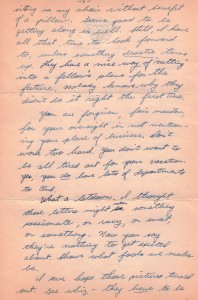 sitting in my chair without benefit
of a pillow. Seems good to be
getting along so well. Still I have
all that time to look forward
to, unless something drastic turns
up. They have a nice way of "cutting"
into a fellow's plans for the
future, nobody knows why they
didn't do it right the first time.
You are forgiven, fair maiden,
for your oversight in not mention-
ing your place of business. Don't
work too hard, you don't want to
be all tired out for your vacation.
Yes, you do have lots of departments
to tend.
What a letdown. I thought
those letters might be something
passionate, or racy, or sweet
or something. Now you say
they're nothing to get excited
about. Shows what fools we males
be.
I sure hope those pictures turned
out. Gee whiz - they have to be